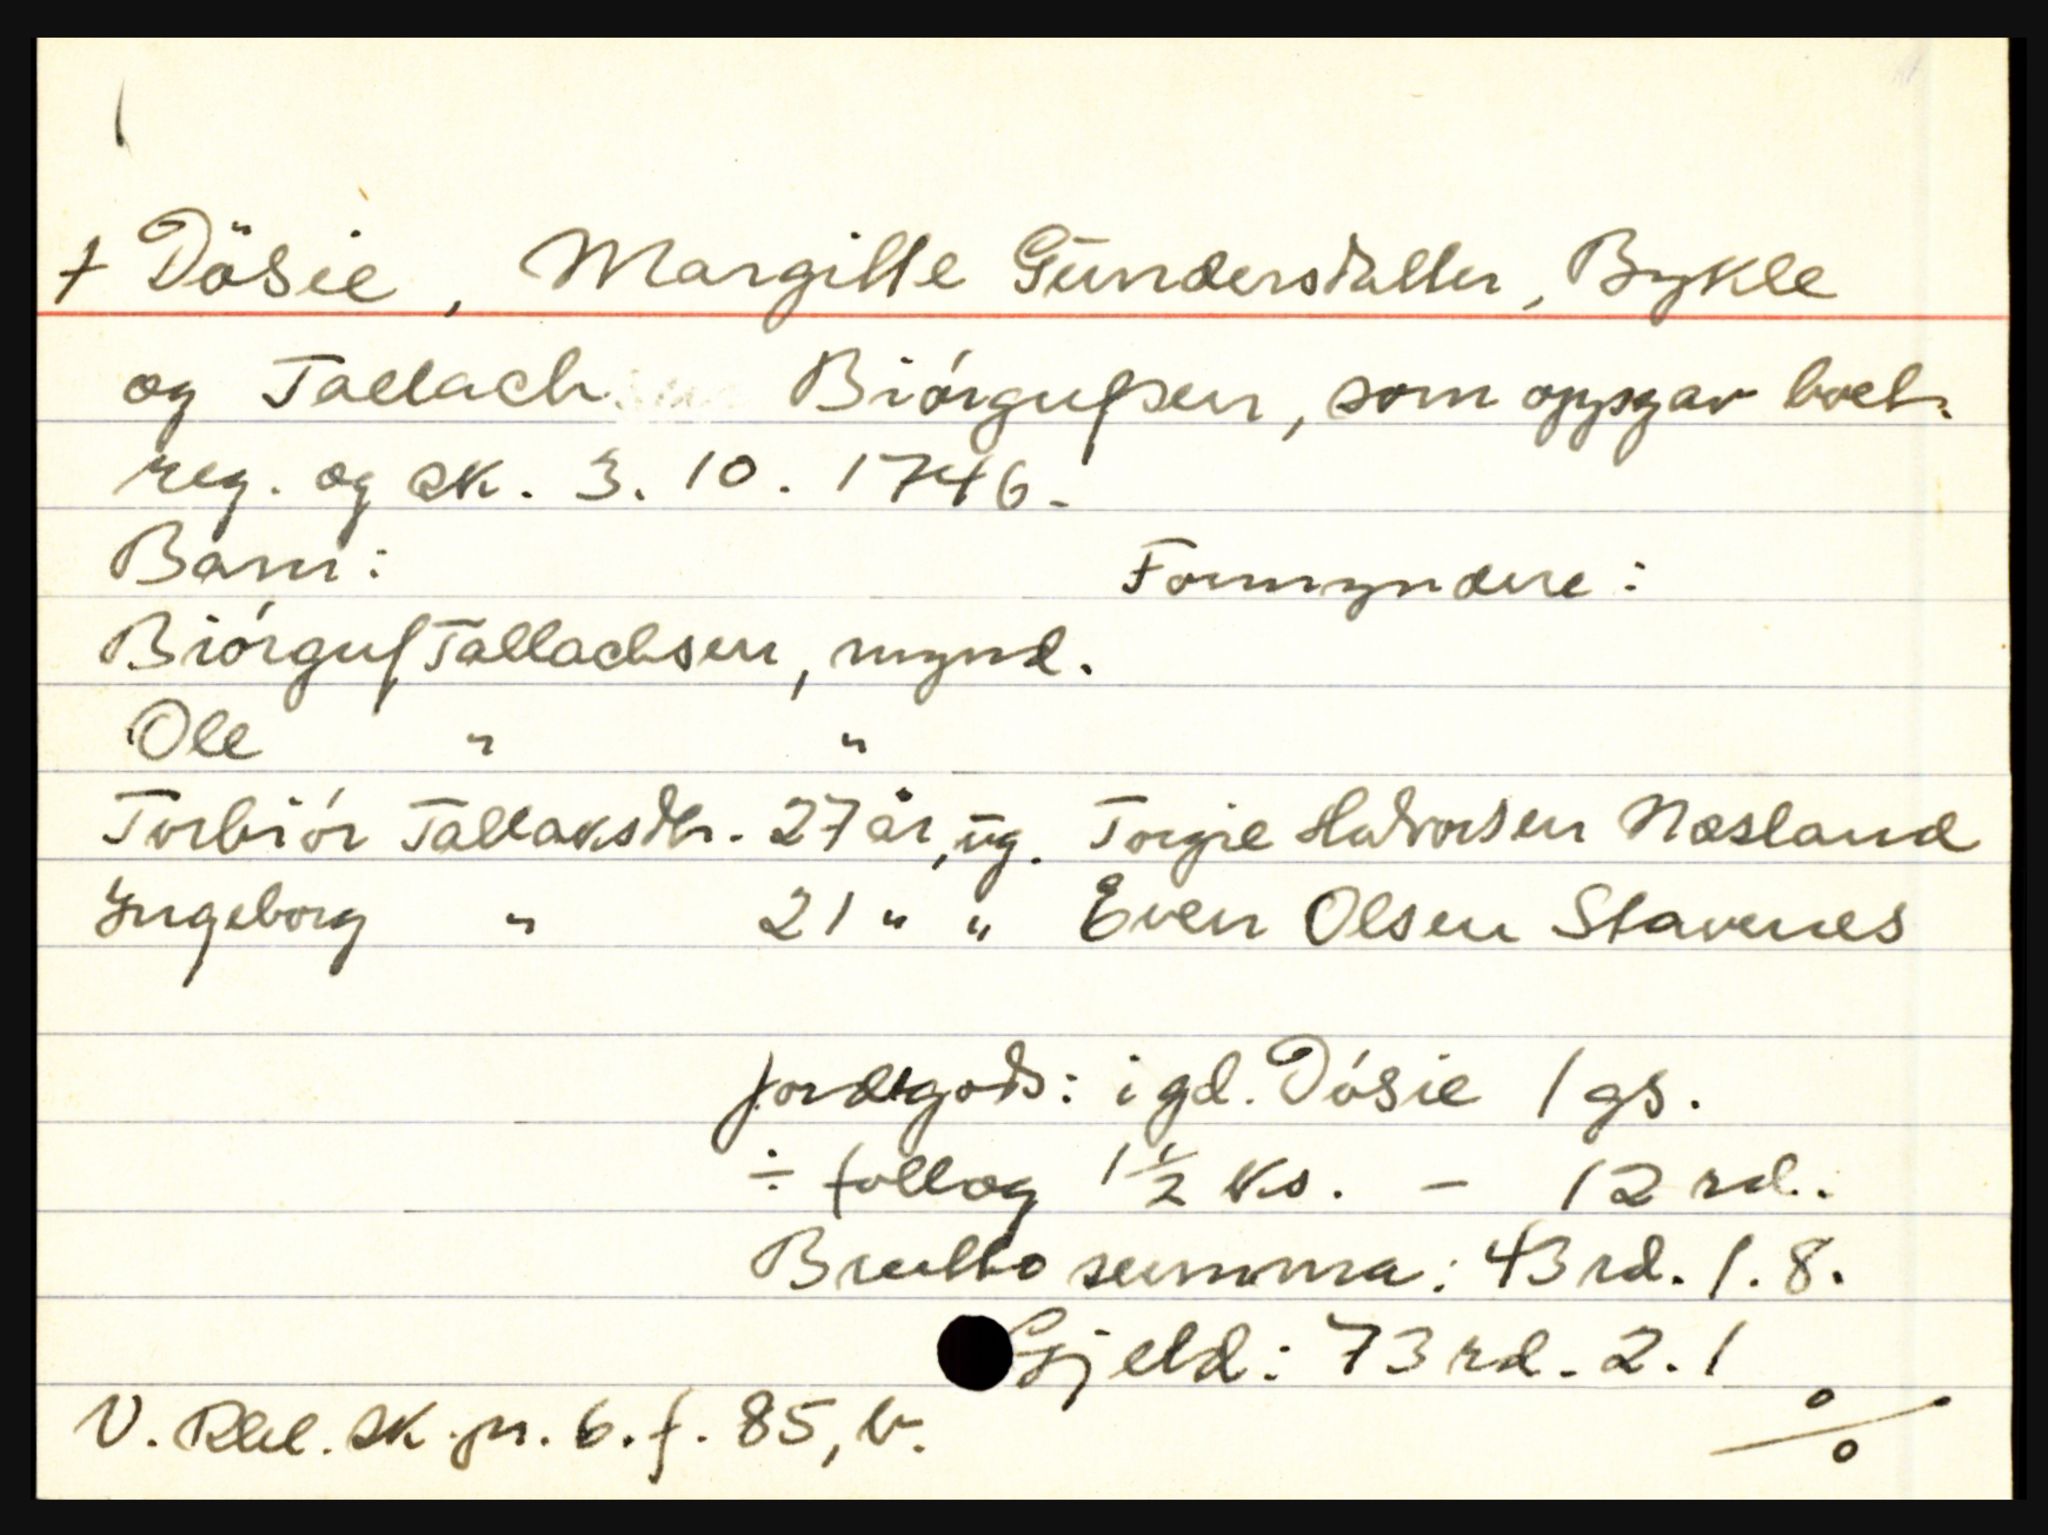 + Dösie, Margitte Gŭndersdatter, Bykle
og Tallach Biórgufsen, som oppgav boet.
reg. og sk. 3. 10. 1746.
Barn: Formyndere:
Biórguf Tallachsen, mynd.
Ole " "
Torbiór Tallaksdtr. 27 år, ŭg. Torgie Halvorsen Næsland
Ingeborg " 21 " " Even Olsen Stavenes
Jordegods: i gd. Dósie 1 gs.
÷ follog 1½ ks. - 12 rd.
Brutto summa: 43 rd. 1. 8.
Gjeld: 73 rd. 2. 1
V. Rbd. sk. pr. 6. f. 85, b.
%